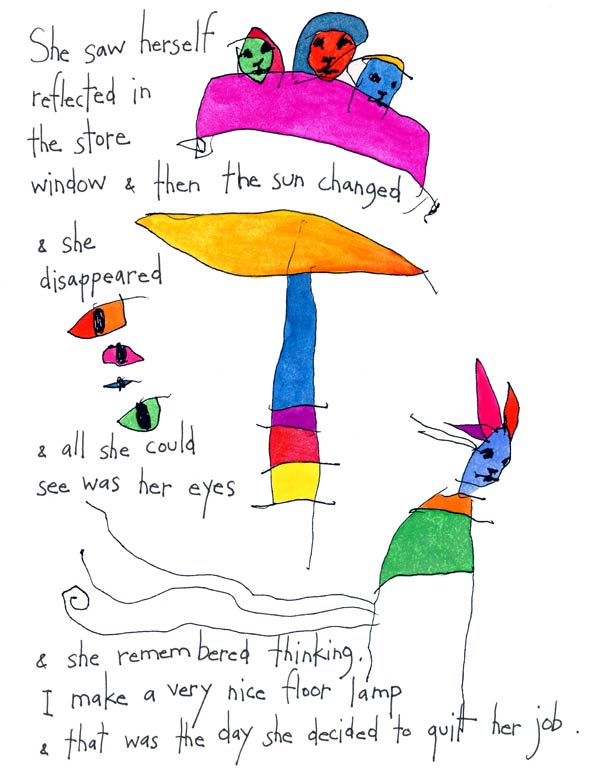 She saw herself
reflected in
the store
window & then the sun changed
& she
disappeared
& all she could
see was her eyes
& she remembered thinking.
I make a very nice floor lamp
& that was the day she decided to quit her job.